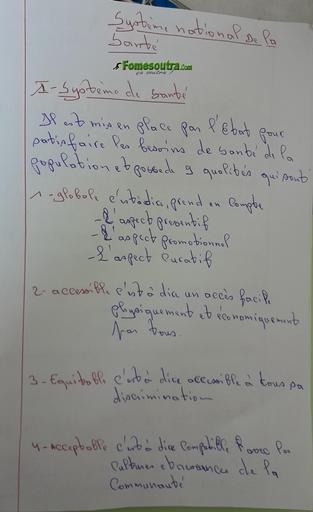 Système national de la
Santé
Fomesoutra.com
ça soutra !
I - Système de Santé
Il est mis en place par l'Etat pour
satisfaire les besoins de santé de la
population et possede 9 qualités qui sont
1 - globale c'està dire, prend en compte
- L'aspect preventif
- L'aspect promotionnel
- L'aspect curatif
2 - accessible c'està dire un accès facile
physiquement et économiquement
par tous.
3 - Equitable c'està dire accessible à tous sa
discrimination
4 - Acceptable c'està dire compatible avec les
cultures et de la
Communauté